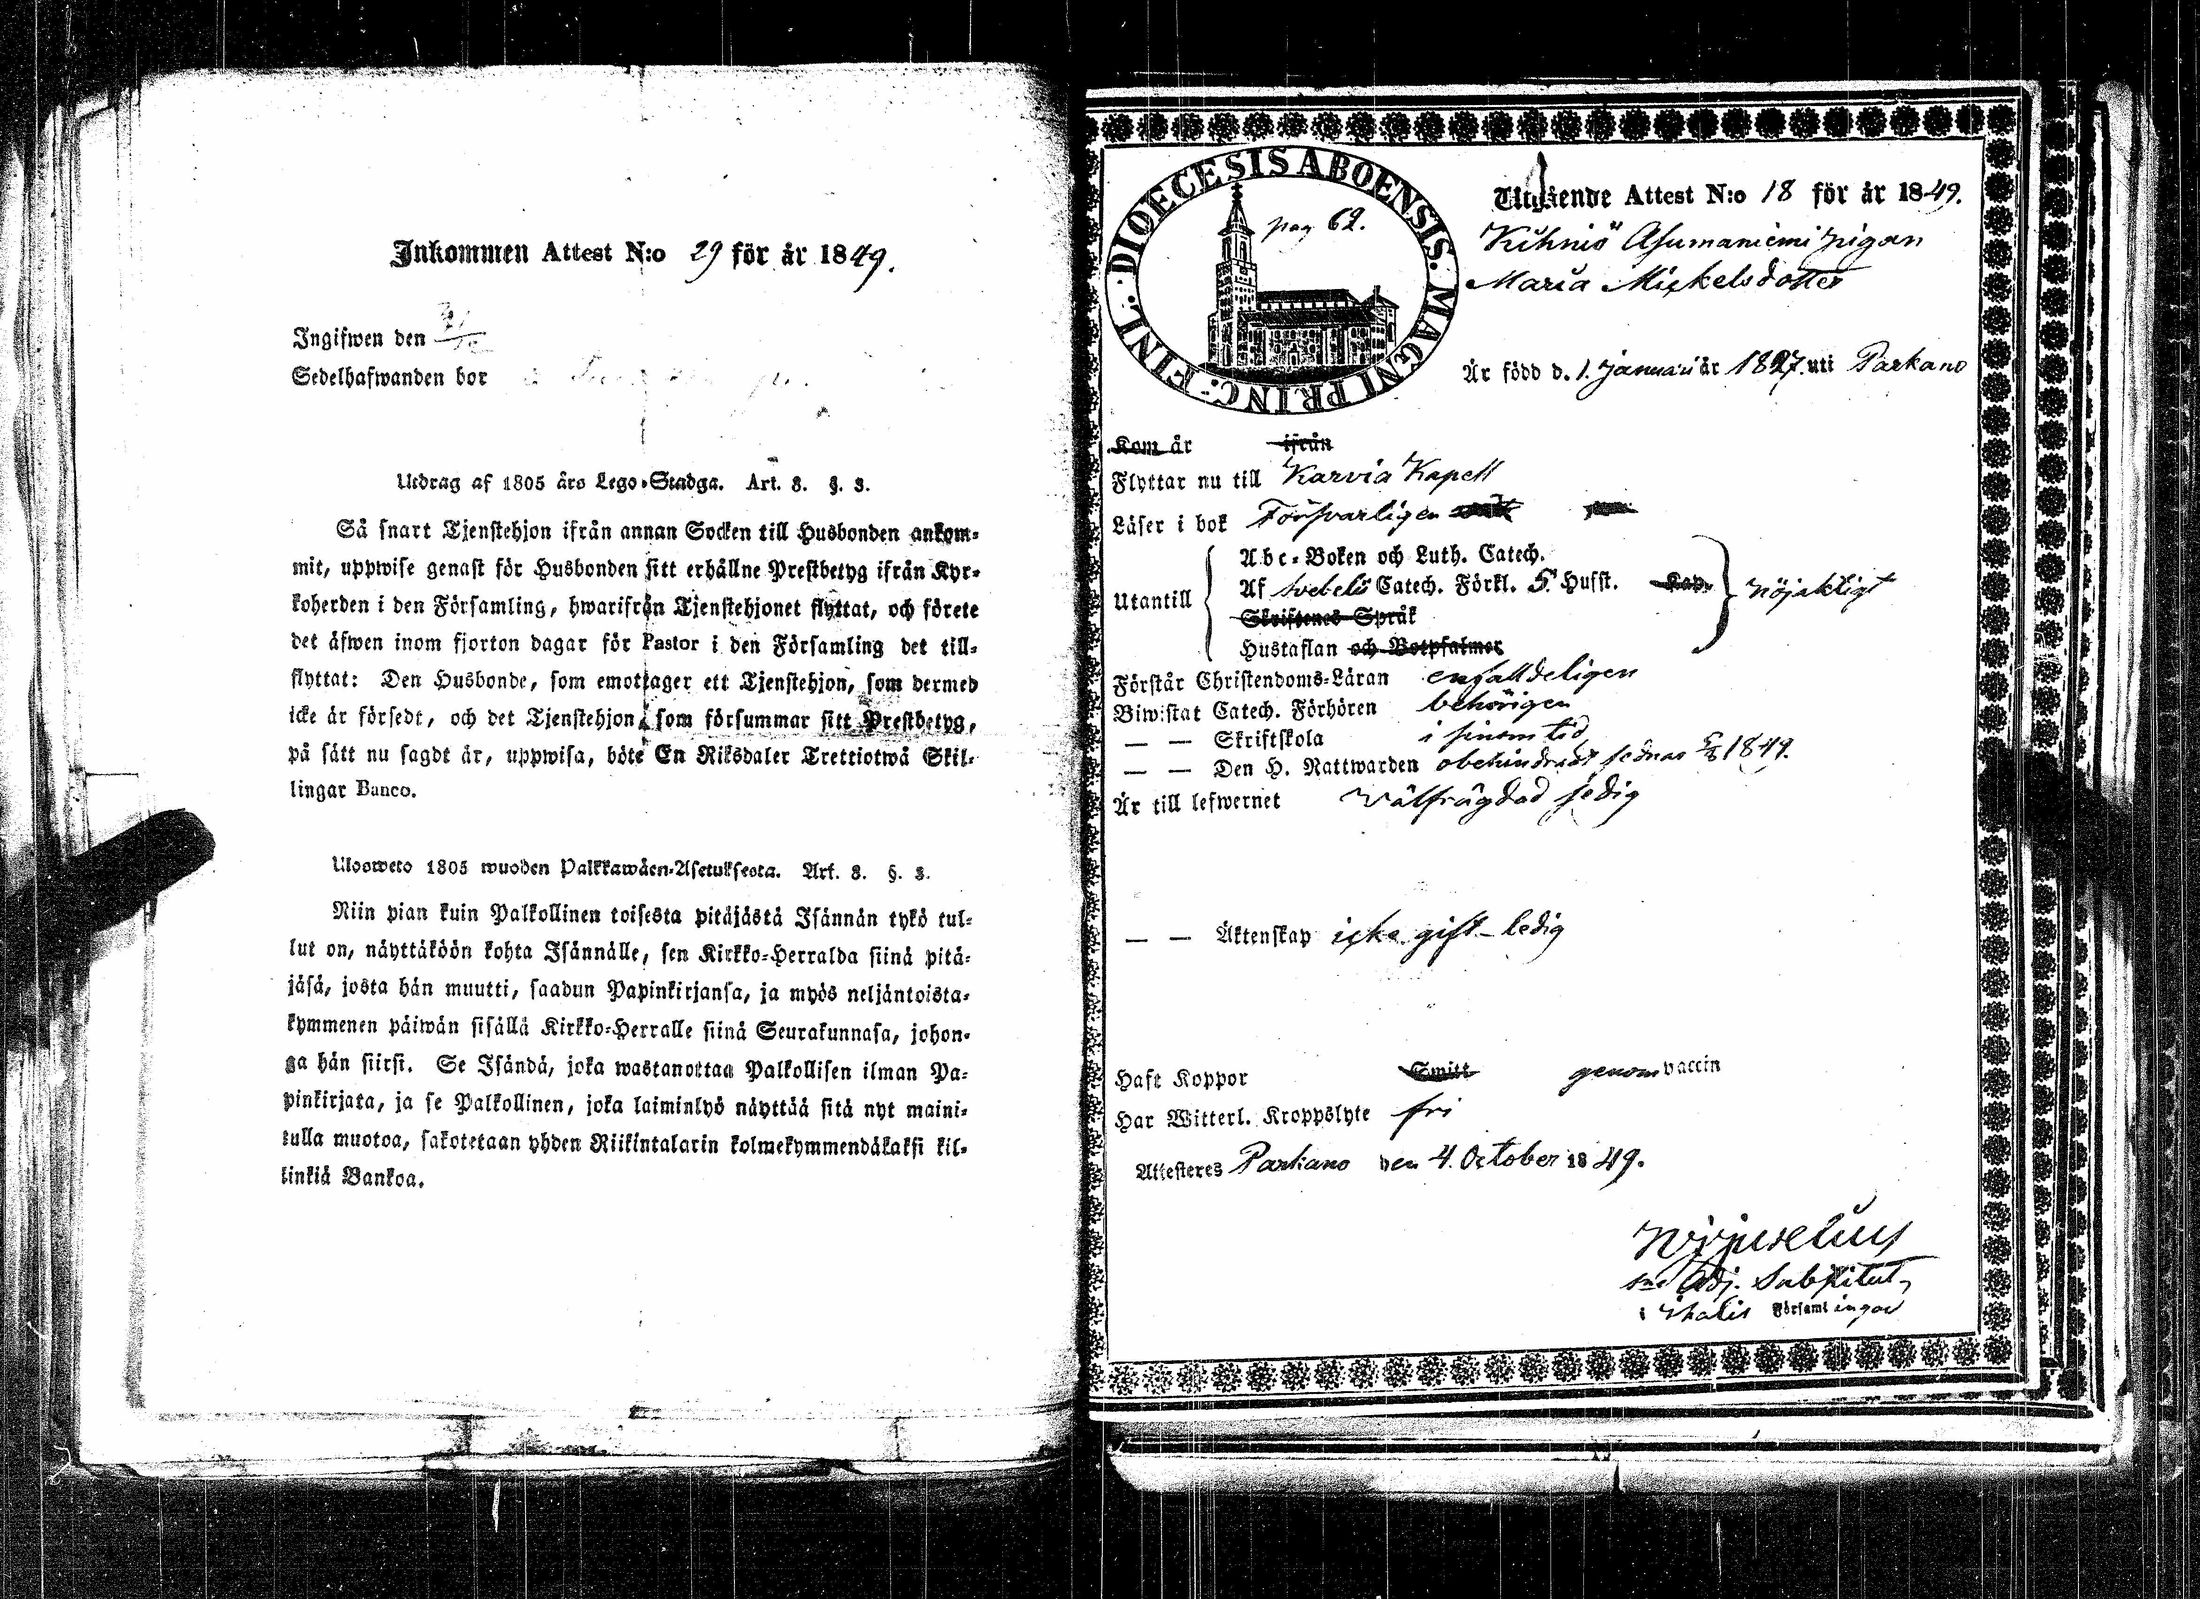 Inkommen Attest N:o 29 för år 1849.
Ingifwen den
Sedelhafwanden bor
Utdrag af 1805 års Lego-Stadga. Art. 8. §. 3.
Så snart Tjenstehjon ifrån annan Socken till Husbonden ankom-
mit, uppwise genast för Husbonden sitt erhållne Prestbetyg ifrån Kyr-
koherden i den Församling, hwarifrån Tjenstehjonet flyttat, och förete
det äfwen inom fjorton dagar för Pastor i den Församling det till-
flyttat: Den Husbonde, som emottager ett Tjenstehjon, som dermed
icke är försedt, och det Tjenstehjon, som försummar sitt Prestbetyg,
på sätt nu sagdt är, uppwisa, böte En Riksdaler Trettiotwå Skil-
lingar Banco.
Ulosweto 1805 wuoden Palkkawäen-Asetuksesta. Art. 8. §. 3.
Niin pian kuin Palkollinen toisesta pitäjästä Isännän tykö tul-
lut on, näyttäköön kohta Isännälle, sen Kirkko-Herralda siinä pitä-
jäsä, josta hän muutti, saadun Papinkirjansa, ja myös neljäntoista-
kymmenen päiwän sisällä Kirkko-Herralle siinä Seurakunnasa, johon-
ga hän siirsi. Se Isändä, joka wastanottaa Palkollisen ilman Pa-
pinkirjata, ja se Palkollinen, joka laiminlyö näyttää sitä nyt maini-
tulla muotoa, sakotetaan yhden Riikintalarin kolmekymmendäkaksi kil-
linkiä Bankoa.
DIOECESIS ABOENSIS. MAGNI PRINC: FINL.
pag 62.
Utgående Attest N:o 18 för år 1849.
Kihniö Asumaniemi pigan
Maria Mickelsdotter
Är född d. 1. januari år 1827. uti Parkano
Kom år ifrån
Flyttar nu till Karvia Kapell
Läser i bok Försvarligen
Utantill
Abc-Boken och Luth. Catech.
Af Svebelii Catech. Förkl. 5. Husst. Kap.
Skriftenes Språk
Hustaflan och Botpsalmer
nöjaktigt
Förstår Christendoms-Läran enfalldeligen
Biwistat Catech. Förhören behörigen
— — Skriftskola i sinom tid
— — Den H. Nattwarden obehindradt sednas 5/8 1849.
Är till lefwernet Välfrägdad sedig
— — Äktenskap icke gift - ledig
Haft Koppor Smitt genom vaccin
Har Witterl. Kroppslyte fri
Attesteres Parkano den 4. October 1849.
Adj. Substitut,
i Ikalis Församlingar